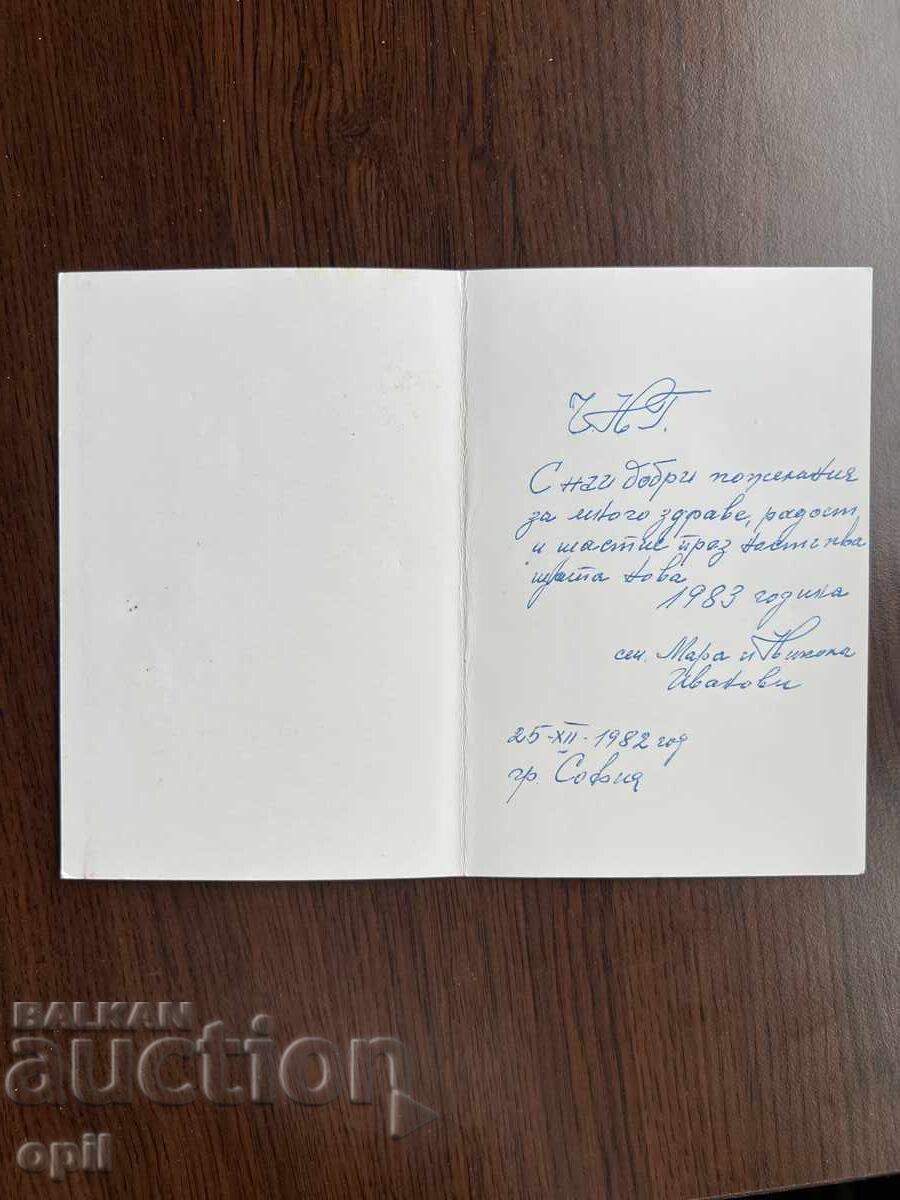 Ч.Н.Г.
С най добри пожелания
за много здраве, радост
и щастие през настъпва
щата нова
1983 година
сем. Мара и Никола
Иванови
25-XII-1982 год
гр. София
BALKAN
auction
opil